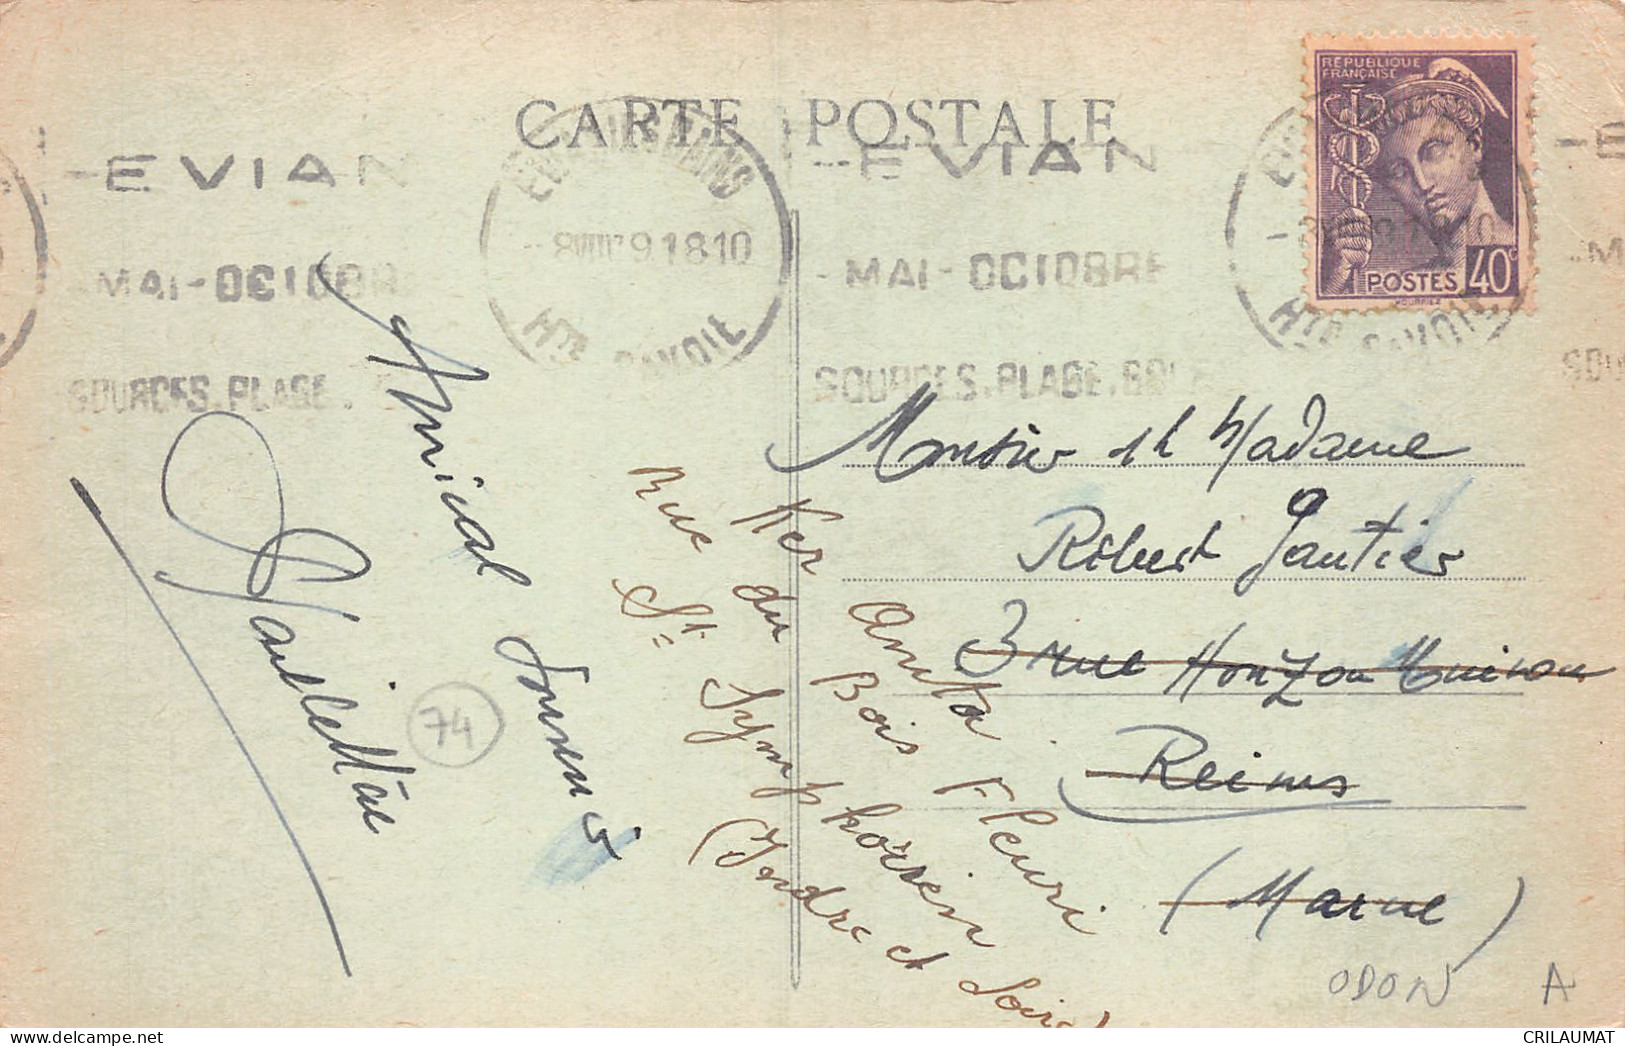 CARTE POSTALE
RÉPUBLIQUE
FRANÇAISE
POSTES 40c
EVIAN
MAI-OCTOBRE
SOURCES.PLAGE.
EVIAN
MAI-OCTOBRE
SOURCES.PLAGE.
8 VIII 39 18 10
HTE SAVOIE
Amical Souvenir
74
Monsieur et Madame
Robert Gautier
3 rue
Reims
(Marne)
Ker Anita
Rue du Bois Fleuri
St Symphorien
(Indre et Loire)
ODON A
CRILAUMAT